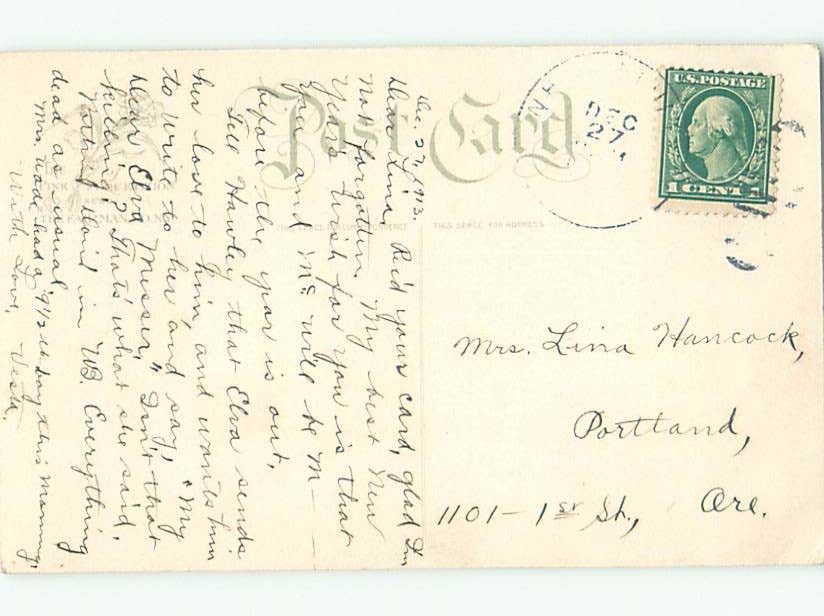 Post Card
THIS SPACE FOR CORRESPONDENCE
THIS SPACE FOR ADDRESS
U.S. POSTAGE
1 CENT 1
DEC
27
Dec. 27, 1913.
Dear Lina, Rec'd your card, glad I'm
not forgotten. My best New
Year's wish for you is that
you and Mc will be M—
before the year is out.
Tell Hawley that Elva sends
her love to him, and wants him
to write to her and say, "My
Dear Elva Messer," Isn't that
killing? That's what she said.
Nothing in W.B. Everything
dead as usual.
Mrs. Wood had a 9 1/2 lb boy this morning.
With Love, Vesta.
Mrs. Lina Hancock,
Portland,
1101 - 1st St., Ore.